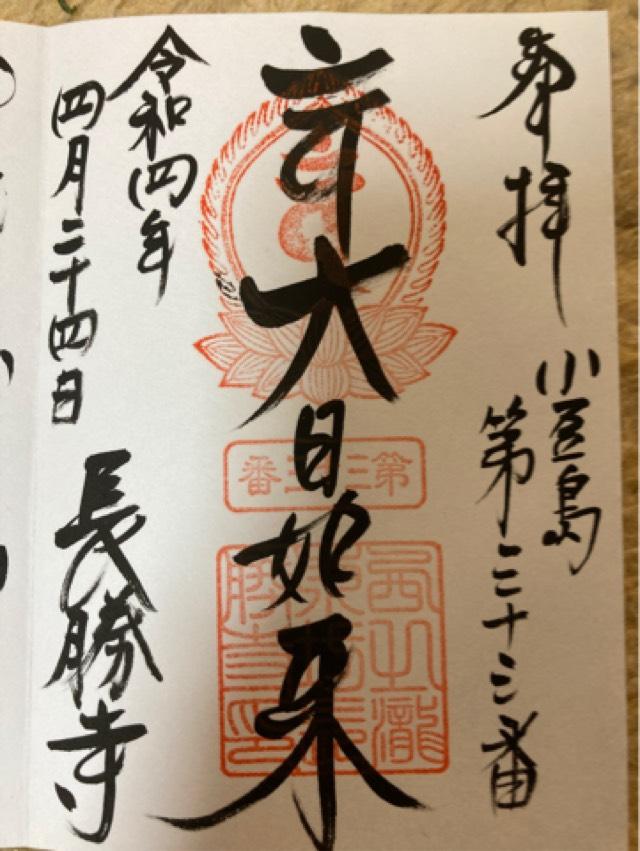 奉拝
小豆島
第三十三番
大日如来
第三三番
令和四年
四月二十四日
長勝寺